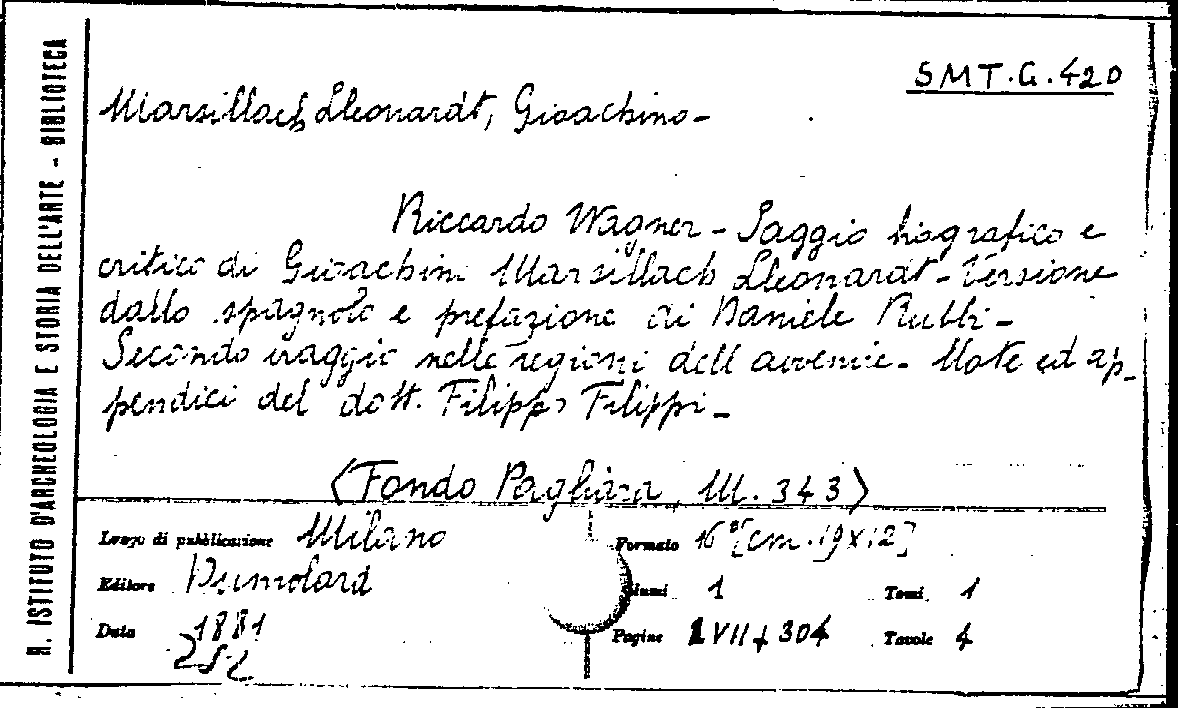 R. ISTITUTO D'ARCHEOLOGIA E STORIA DELL'ARTE - BIBLIOTECA
SMT.G.420
Marsillach Lleonardt, Gioachino-
Riccardo Wagner - Saggio biografico e
critico di Gioachini Marsillach Lleonardt - Versione
dallo spagnolo e prefazione di Daniele Rubbi -
Secondo viaggio nelle regioni dell'avvenire - Note ed ap-
pendici del dott. Filippo Filippi -
(Fondo Pagliara, M. 343)
Luogo di pubblicazione Milano Formato 16° [cm. 19x12]
Editore Dumolard 1 Tomi 1
Data 1881 Pagine LVII + 304 Tavole 4
252